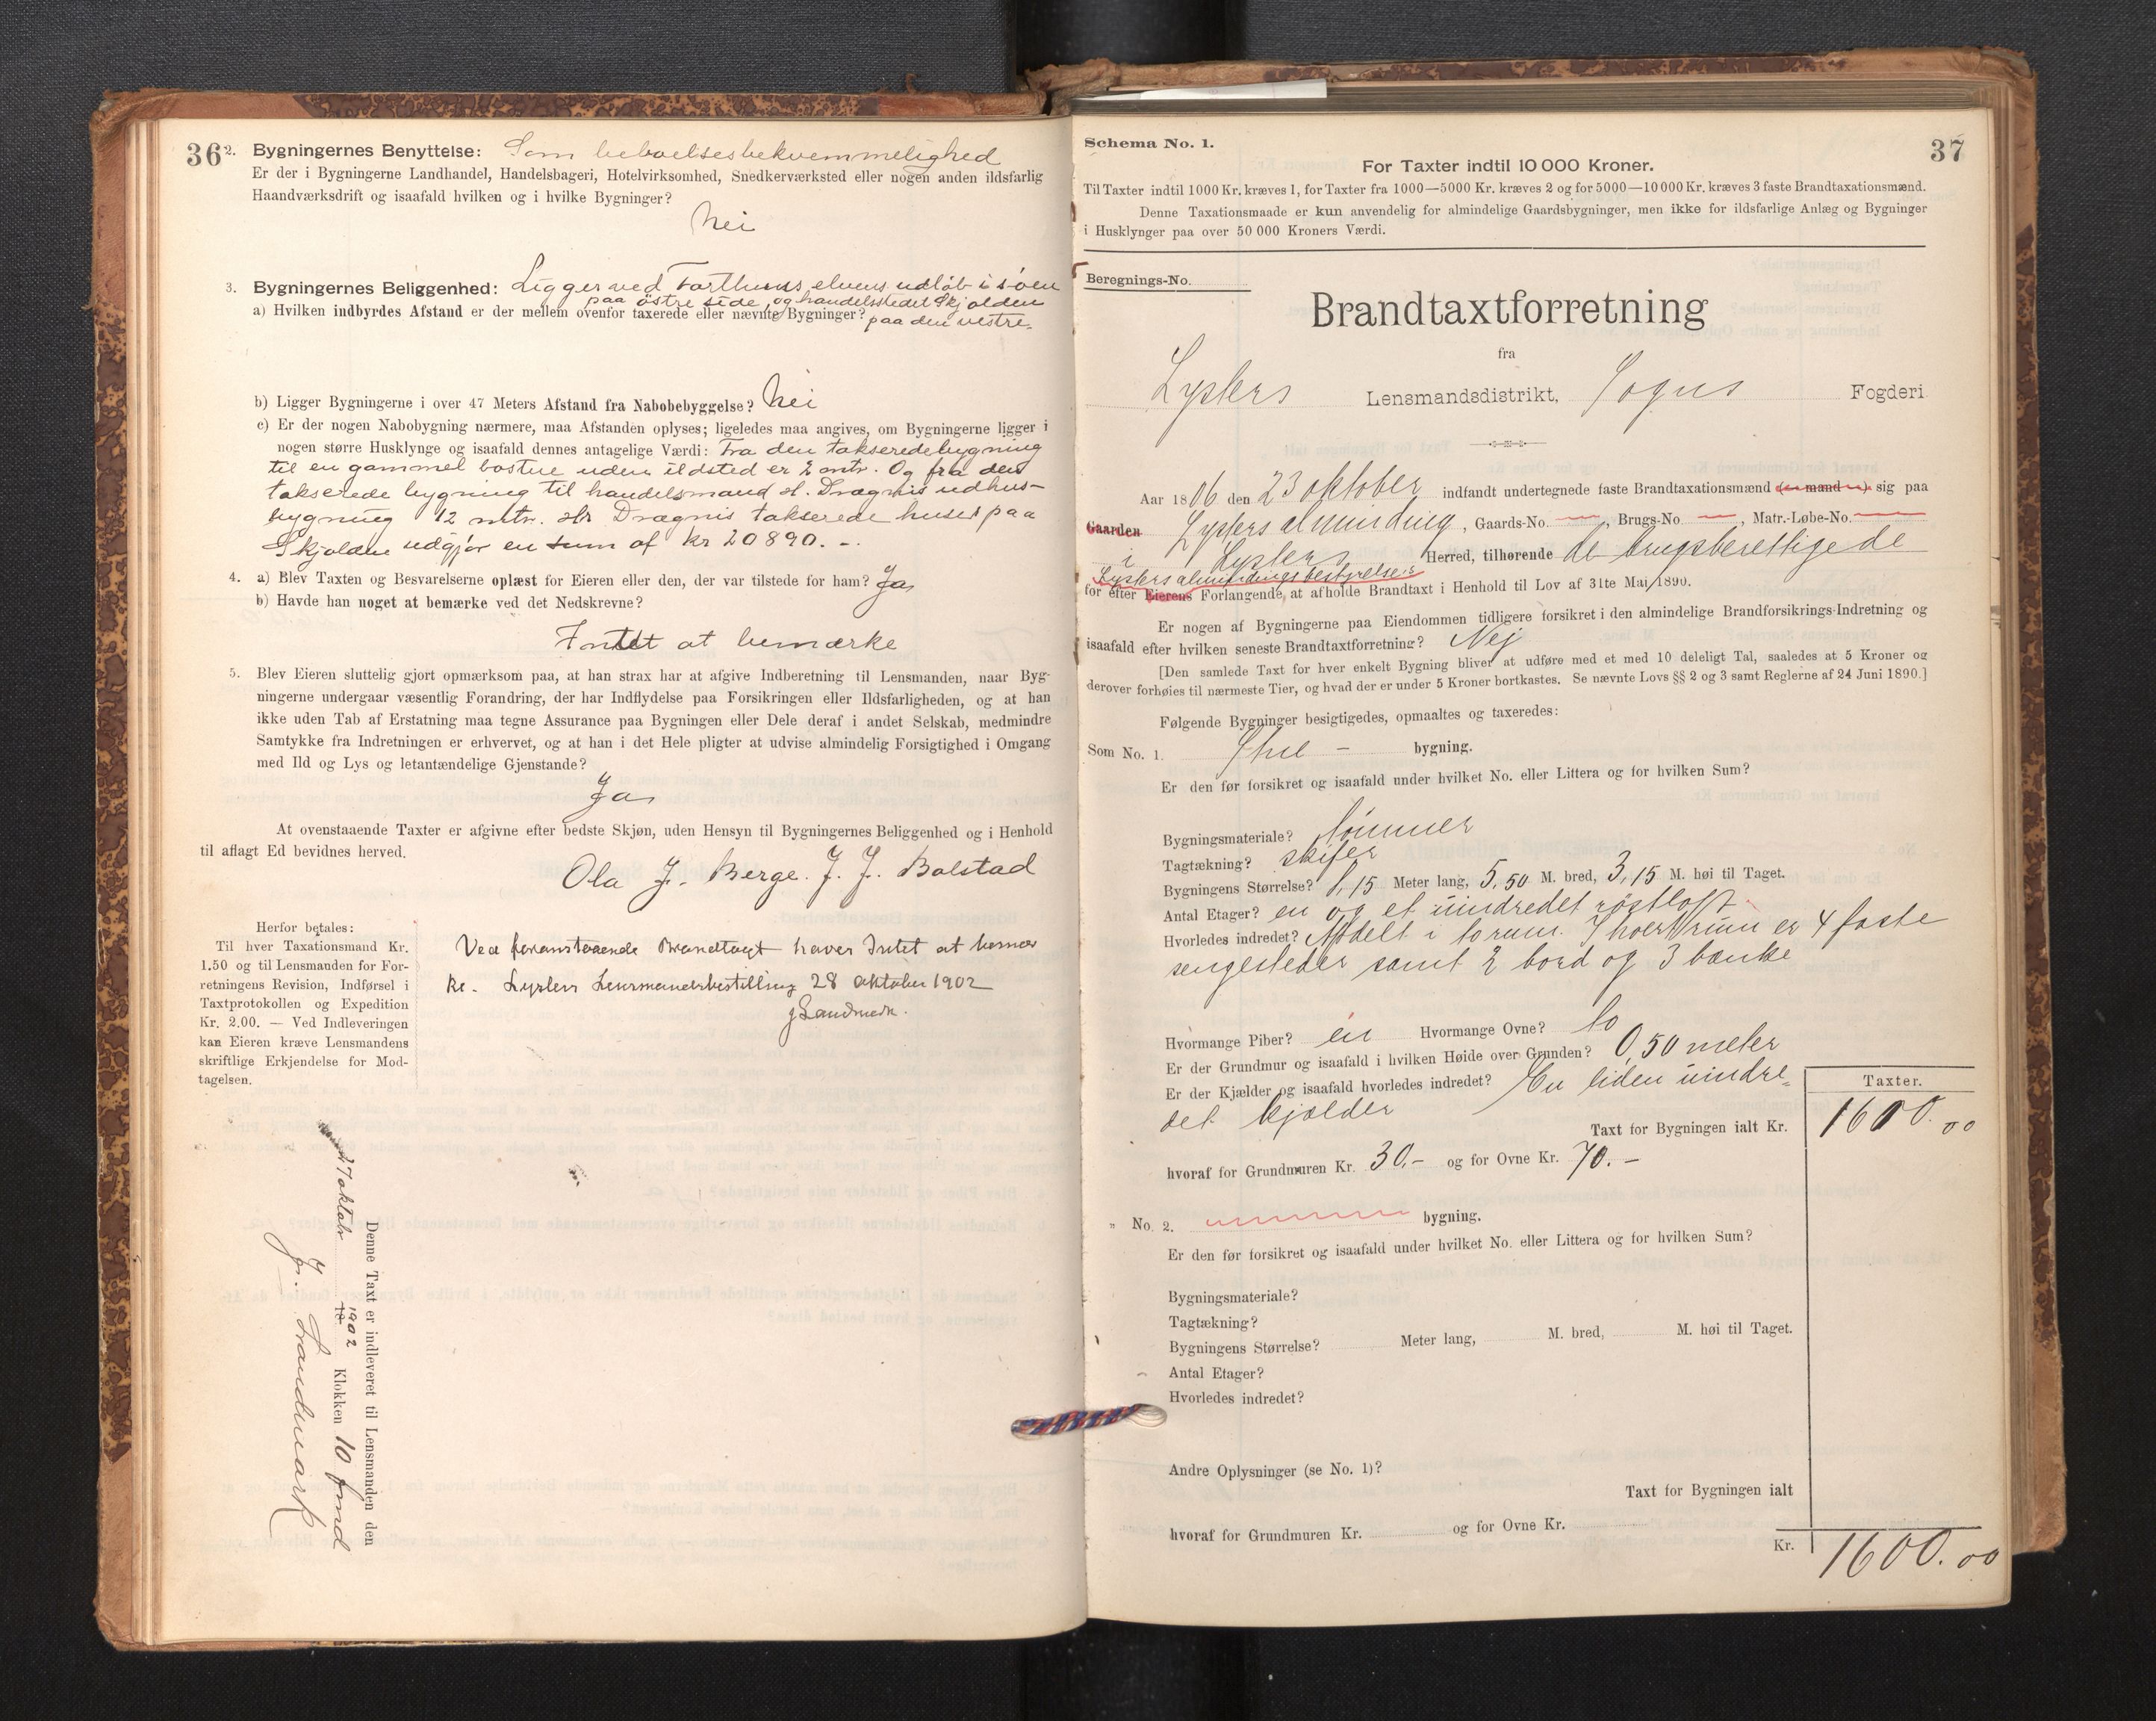 36
2. Bygningernes Benyttelse: Som beboelsesbekvemmelighed
Er der i Bygningerne Landhandel, Handelsbageri, Hotelvirksomhed, Snedkerværksted eller nogen anden ildsfarlig
Haandværksdrift og isaafald hvilken og i hvilke Bygninger?
Nei
3. Bygningernes Beliggenhed: Ligger ved Forthuns elvens udløb i søen
paa østre side, og handelsstedet Skjolden
a) Hvilken indbyrdes Afstand er der mellem ovenfor taxerede eller nævnte Bygninger? paa den vestre.
b) Ligger Bygningerne i over 47 Meters Afstand fra Nabobebyggelse? Nei
c) Er der nogen Nabobygning nærmere, maa Afstanden oplyses; ligeledes maa angives, om Bygningerne ligger i
nogen større Husklynge og isaafald dennes antagelige Værdi: Fra den taksere­de bygning
til en gammel bostue uden ildsted er 2 mtr. Og fra den
takserede bygning til handelsmand H. Drægnis udhus-
bygning 12 mtr. Hr Drægnis takserede huser paa
Skjolden udgjør en sum af kr 20890. -.
4. a) Blev Taxten og Besvarelserne oplæst for Eieren eller den, der var tilstede for ham? Ja
b) Havde han noget at bemærke ved det Nedskrevne?
Intet at bemærke
5. Blev Eieren sluttelig gjort opmærksom paa, at han strax har at afgive Indberetning til Lensmanden, naar Byg-
ningerne undergaar væsentlig Forandring, der har Indflydelse paa Forsikringen eller Ildsfarligheden, og at han
ikke uden Tab af Erstatning maa tegne Assurance paa Bygningen eller Dele deraf i andet Selskab, medmindre
Samtykke fra Indretningen er erhvervet, og at han i det Hele pligter at udvise almindelig Forsigtighed i Omgang
med Ild og Lys og letantændelige Gjenstande?
Ja
At ovenstaaende Taxter er afgivne efter bedste Skjøn, uden Hensyn til Bygningernes Beliggenhed og i Henhold
til aflagt Ed bevidnes herved.
Ola J. Berge. J. J. Bolstad
Herfor betales:
Til hver Taxationsmand Kr.
1.50 og til Lensmanden for For-
retningens Revision, Indførsel i
Taxtprotokollen og Expedition
Kr. 2.00. — Ved Indleveringen
kan Eieren kræve Lensmandens
skriftlige Erkjendelse for Mod-
tagelsen.
Ved foranstaaende Brandtaxt haves Intet at bemær
ke. Lysters Lensmandsbestilling 28 oktober 1902
J Sandmark.
Denne Taxt er indleveret til Lensmanden den
27 oktobr 18 1902 Klokken 10 fmd
J. Sandmark
37
Schema No. 1.
For Taxter indtil 10 000 Kroner.
Til Taxter indtil 1000 Kr. kræves 1, for Taxter fra 1000—5000 Kr. kræves 2 og for 5000—10 000 Kr. kræves 3 faste Brandtaxationsmænd.
Denne Taxationsmaade er kun anvendelig for almindelige Gaardsbygninger, men ikke for ildsfarlige Anlæg og Bygninger
i Husklynger paa over 50 000 Kroners Værdi.
Beregnings-No.
Brandtaxtforretning
fra
Lysters Lensmandsdistrikt, Sogns Fogderi
Aar 1806 den 23 oktober indfandt undertegnede faste Brandtaxationsmænd (en mand) sig paa
Gaarden Lysters alminding, Gaards-No. —, Brugs-No. —, Matr.-Løbe-No. —
i Lysters Herred, tilhørende de brugsberettigede
Lysters almindingsbestyrelses
for efter Eierens Forlangende at afholde Brandtaxt i Henhold til Lov af 31te Mai 1890.
Er nogen af Bygningerne paa Eiendommen tidligere forsikret i den almindelige Brandforsikrings-Indretning og
isaafald efter hvilken seneste Brandtaxtforretning? Nej
[Den samlede Taxt for hver enkelt Bygning bliver at udføre med et med 10 deleligt Tal, saaledes at 5 Kroner og
derover forhøies til nærmeste Tier, og hvad der er under 5 Kroner bortkastes. Se nævnte Lovs §§ 2 og 3 samt Reglerne af 24 Juni 1890.]
Følgende Bygninger besigtigedes, opmaaltes og taxeredes:
Som No. 1. bygning.
Er den før forsikret og isaafald under hvilket No. eller Littera og for hvilken Sum?
Bygningsmateriale? tømmer
Tagtækning? skifer
Bygningens Størrelse? 8,15 Meter lang, 5,50 M. bred, 3,15 M. høi til Taget.
Antal Etager? en og et uindredet røstloft
Hvorledes indredet? Afdelt i to rum. I hvert rum er 4 faste
sengesteder samt 2 bord og 3 bænke
Hvormange Piber? en Hvormange Ovne? to
Er der Grundmur og isaafald i hvilken Høide over Grunden? 0,50 meter
Er der Kjælder og isaafald hvorledes indredet? En liden uindre-
det kjælder
Taxter.
Taxt for Bygningen ialt Kr. 1600.00
hvoraf for Grundmuren Kr. 30.- og for Ovne Kr. 70.-
" No. 2. bygning.
Er den før forsikret og isaafald under hvilket No. eller Littera og for hvilken Sum?
Bygningsmateriale?
Tagtækning?
Bygningens Størrelse? Meter lang, M. bred, M. høi til Taget.
Antal Etager?
Hvorledes indredet?
Andre Oplysninger (se No. 1)?
Taxt for Bygningen ialt
hvoraf for Grundmuren Kr. og for Ovne Kr.
Kr. 1600.00